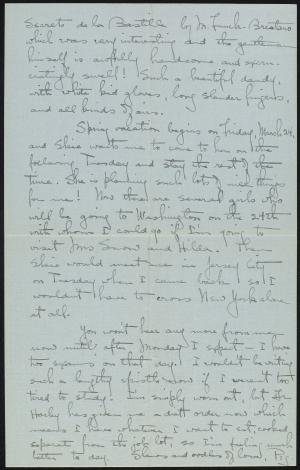 Secrets de la Bastille by M. Funck-Brentano
which was very interesting and the gentleman
himself is awfully handsome and excru-
ciatingly swell! Such a beautiful dandy,
with white kid gloves, long slender fingers,
and all kinds of airs.
Spring vacation begins on Friday, March 24,
and Elsie wants me to come to her on the
following Tuesday and stay the rest of the
time. She is planning such lots of nice things
for me! Now there are several girls who
will be going to Washington on the 24th
with whom I could go if I'm going to
visit Mrs Snow and Hilda. Then
Elsie would meet me in Jersey City
on Tuesday when I came back, so I
wouldn't have to cross New York alone
at all.
You won't hear any more from me
now until after Monday I expect - I have
two exams on that day. I wouldn't be writing
such a lengthy epistle now if I weren't too
tired to study. I'm simply worn out, but Dr
has given me a diet order now which
means I have whatever I want to eat, cooked,
separate from the job lot, so I'm feeling much
better to day. Slews and oodles of love, Fig